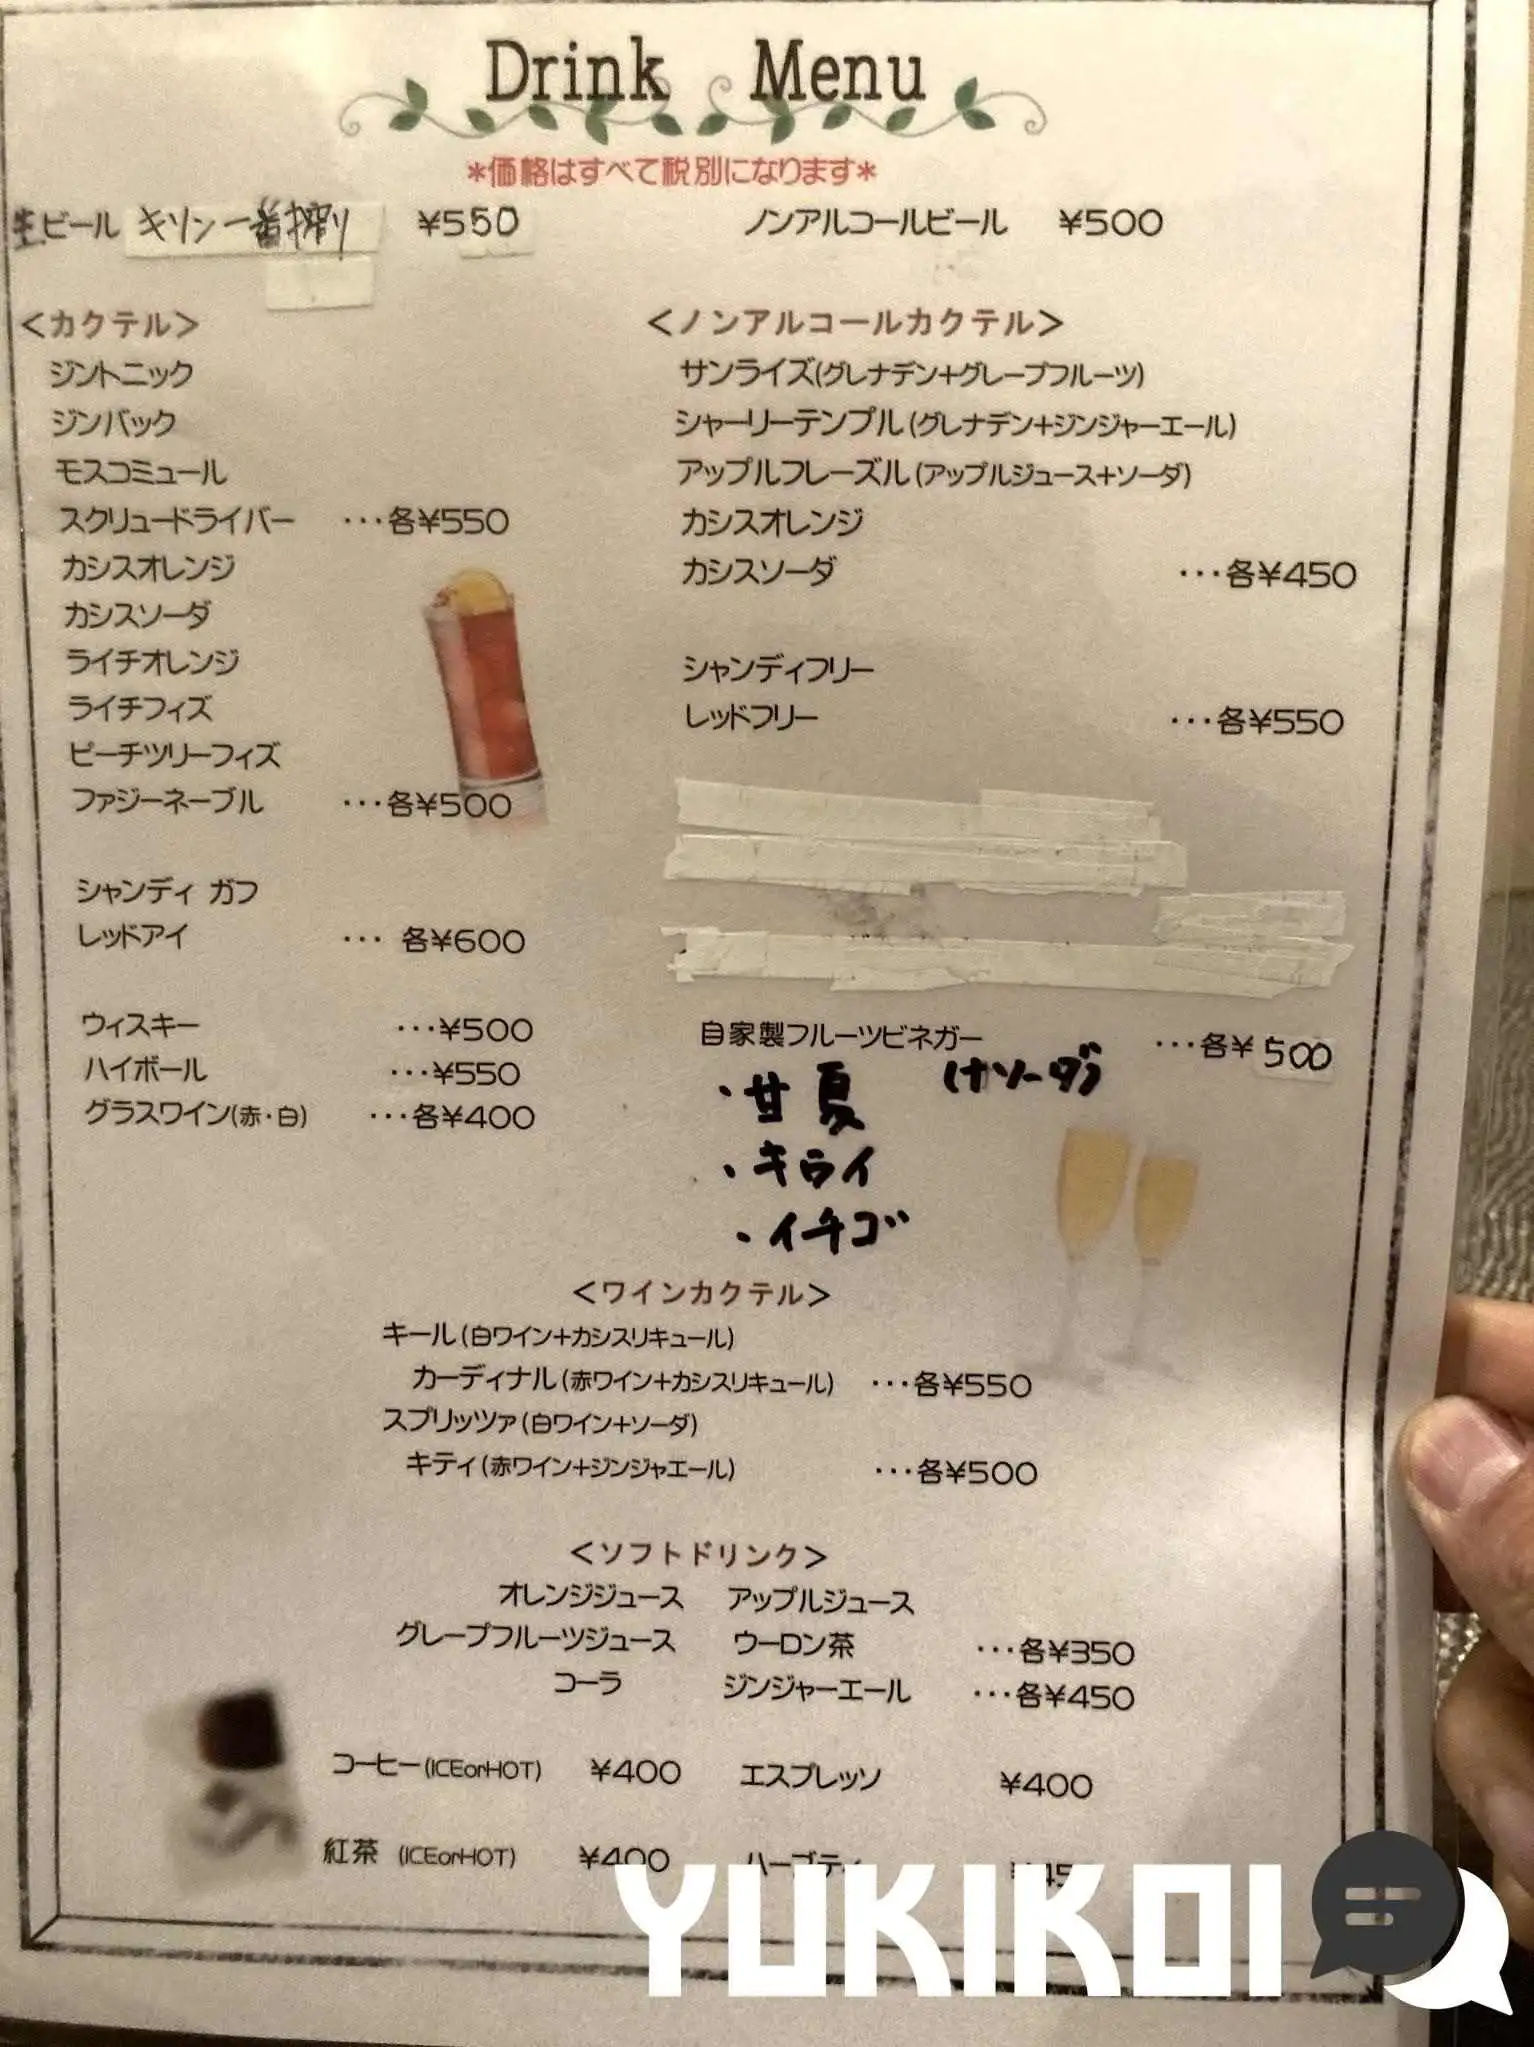 Drink Menu
*価格はすべて税別になります*
生ビール キリン一番搾り ¥550
ノンアルコールビール ¥500
<カクテル>
ジントニック
ジンバック
モスコミュール
スクリュードライバー ・・・各¥550
カシスオレンジ
カシスソーダ
ライチオレンジ
ライチフィズ
ピーチツリーフィズ
ファジーネーブル ・・・各¥500
シャンディ ガフ
レッドアイ ・・・ 各¥600
ウィスキー ・・・¥500
ハイボール ・・・¥550
グラスワイン(赤・白) ・・・各¥400
<ノンアルコールカクテル>
サンライズ(グレナデン+グレープフルーツ)
シャーリーテンプル(グレナデン+ジンジャーエール)
アップルフレーズル(アップルジュース+ソーダ)
カシスオレンジ
カシスソーダ ・・・各¥450
シャンディフリー
レッドフリー ・・・各¥550
自家製フルーツビネガー ・・・各¥500
・甘夏
・キウイ
・イチゴ
<ワインカクテル>
キール(白ワイン+カシスリキュール)
カーディナル(赤ワイン+カシスリキュール) ・・・各¥550
スプリッツァ(白ワイン+ソーダ)
キティ(赤ワイン+ジンジャエール) ・・・各¥500
<ソフトドリンク>
オレンジジュース アップルジュース
グレープフルーツジュース ウーロン茶 ・・・各¥350
コーラ ジンジャーエール ・・・各¥450
コーヒー(ICEorHOT) ¥400 エスプレッソ ¥400
紅茶 (ICEorHOT) ¥400 ハーブティ
YUKIKOI